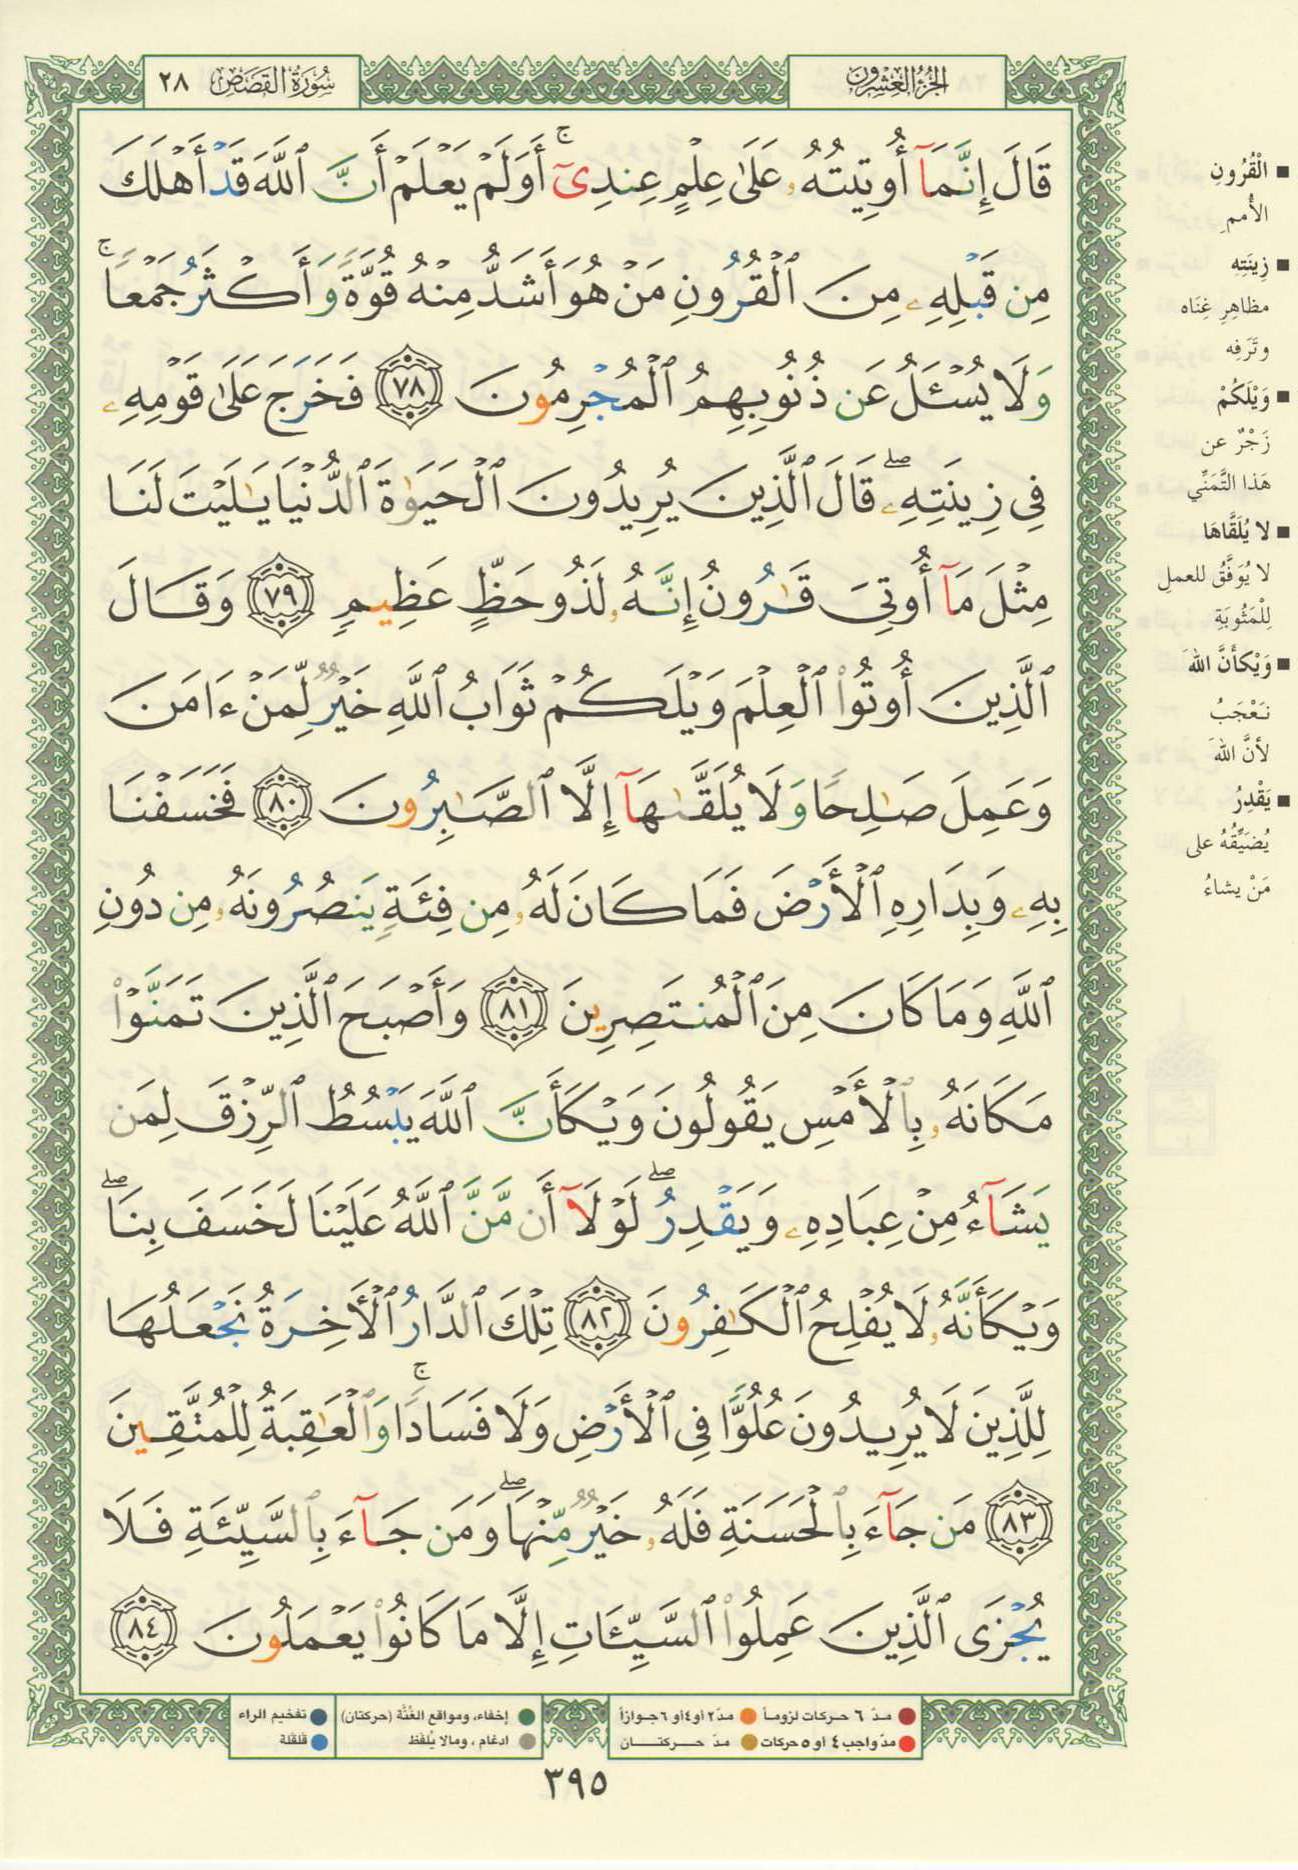 الجزء العشرون
سورة القصص ٢٨
قَالَ إِنَّمَآ أُوتِيتُهُۥ عَلَىٰ عِلْمٍ عِندِىٓ ۚ أَوَلَمْ يَعْلَمْ أَنَّ ٱللَّهَ قَدْ أَهْلَكَ
مِن قَبْلِهِۦ مِنَ ٱلْقُرُونِ مَنْ هُوَ أَشَدُّ مِنْهُ قُوَّةً وَأَكْثَرُ جَمْعًا ۚ
وَلَا يُسْـَٔلُ عَن ذُنُوبِهِمُ ٱلْمُجْرِمُونَ ٧٨ فَخَرَجَ عَلَىٰ قَوْمِهِۦ
فِى زِينَتِهِۦ ۖ قَالَ ٱلَّذِينَ يُرِيدُونَ ٱلْحَيَوٰةَ ٱلدُّنْيَا يَـٰلَيْتَ لَنَا
مِثْلَ مَآ أُوتِىَ قَـٰرُونُ إِنَّهُۥ لَذُو حَظٍّ عَظِيمٍ ٧٩ وَقَالَ
ٱلَّذِينَ أُوتُوا۟ ٱلْعِلْمَ وَيْلَكُمْ ثَوَابُ ٱللَّهِ خَيْرٌ لِّمَنْ ءَامَنَ
وَعَمِلَ صَـٰلِحًا وَلَا يُلَقَّىٰهَآ إِلَّا ٱلصَّـٰبِرُونَ ٨٠ فَخَسَفْنَا
بِهِۦ وَبِدَارِهِ ٱلْأَرْضَ فَمَا كَانَ لَهُۥ مِن فِئَةٍ يَنصُرُونَهُۥ مِن دُونِ
ٱللَّهِ وَمَا كَانَ مِنَ ٱلْمُنتَصِرِينَ ٨١ وَأَصْبَحَ ٱلَّذِينَ تَمَنَّوْا۟
مَكَانَهُۥ بِٱلْأَمْسِ يَقُولُونَ وَيْكَأَنَّ ٱللَّهَ يَبْسُطُ ٱلرِّزْقَ لِمَن
يَشَآءُ مِنْ عِبَادِهِۦ وَيَقْدِرُ ۖ لَوْلَآ أَن مَّنَّ ٱللَّهُ عَلَيْنَا لَخَسَفَ بِنَا ۖ
وَيْكَأَنَّهُۥ لَا يُفْلِحُ ٱلْكَـٰفِرُونَ ٨٢ تِلْكَ ٱلدَّارُ ٱلْأَخِرَةُ نَجْعَلُهَا
لِلَّذِينَ لَا يُرِيدُونَ عُلُوًّا فِى ٱلْأَرْضِ وَلَا فَسَادًا ۚ وَٱلْعَـٰقِبَةُ لِلْمُتَّقِينَ
٨٣ مَن جَآءَ بِٱلْحَسَنَةِ فَلَهُۥ خَيْرٌ مِّنْهَا ۖ وَمَن جَآءَ بِٱلسَّيِّئَةِ فَلَا
يُجْزَى ٱلَّذِينَ عَمِلُوا۟ ٱلسَّيِّـَٔاتِ إِلَّا مَا كَانُوا۟ يَعْمَلُونَ ٨٤
■ الْقُرُونِ
الأُممِ
■ زِينَتِه
مظاهِرِ غِنَاه
وتَرَفِه
■ وَيْلَكُمْ
زَجْرٌ عن
هَذا التَّمَنِّي
■ لا يُلَقَّاهَا
لا يُوَفَّقُ للعملِ
لِلْمَثُوبَةِ
■ وَيْكأنَّ اللهَ
نَعْجَبُ
لأنَّ اللهَ
■ يَقْدِرُ
يُضَيِّقُهُ على
مَنْ يشاءُ
مدّ ٦ حركات لزوماً
مدّ ٢ أو ٤ أو ٦ جوازاً
مدّ واجب ٤ أو ٥ حركات
مدّ حركتان
إخفاء، ومواقع الغُنَّة (حركتان)
ادغام، ومالا يُلفَظ
تفخيم الراء
قلقلة
٣٩٥